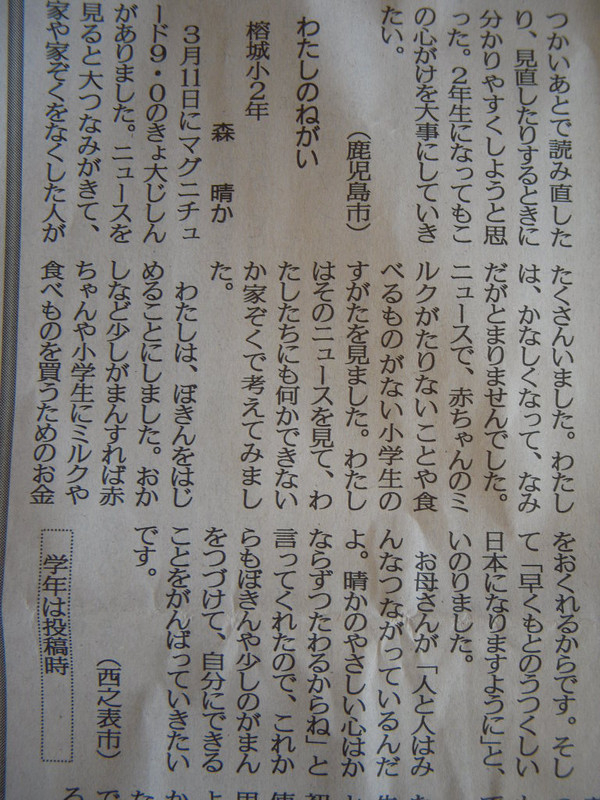 つかいあとで読み直した
り、見直したりするときに
分かりやすくしようと思
った。２年生になってもこ
の心がけを大事にしていき
たい。
（鹿児島市）
わたしのねがい
榕城小２年
森　晴か
３月11日にマグニチュ
ード９・０のきょ大じしん
がありました。ニュースを
見ると大つなみがきて、
家や家ぞくをなくした人が
たくさんいました。わたし
は、かなしくなって、なみ
だがとまりませんでした。
ニュースで、赤ちゃんのミ
ルクがたりないことや食
べるものがない小学生の
すがたを見ました。わたし
はそのニュースを見て、わ
たしたちにも何かできない
か家ぞくで考えてみまし
た。
わたしは、ぼきんをはじ
めることにしました。おか
しなど少しがまんすれば赤
ちゃんや小学生にミルクや
食べものを買うためのお金
をおくれるからです。そし
て「早くもとのうつくしい
日本になりますように」と、
いのりました。
お母さんが「人と人はみ
んなつながっているんだ
よ。晴かのやさしい心はか
ならずつたわるからね」と
言ってくれたので、これか
らもぼきんや少しのがまん
をつづけて、自分にできる
ことをがんばっていきたい
です。
（西之表市）
学年は投稿時